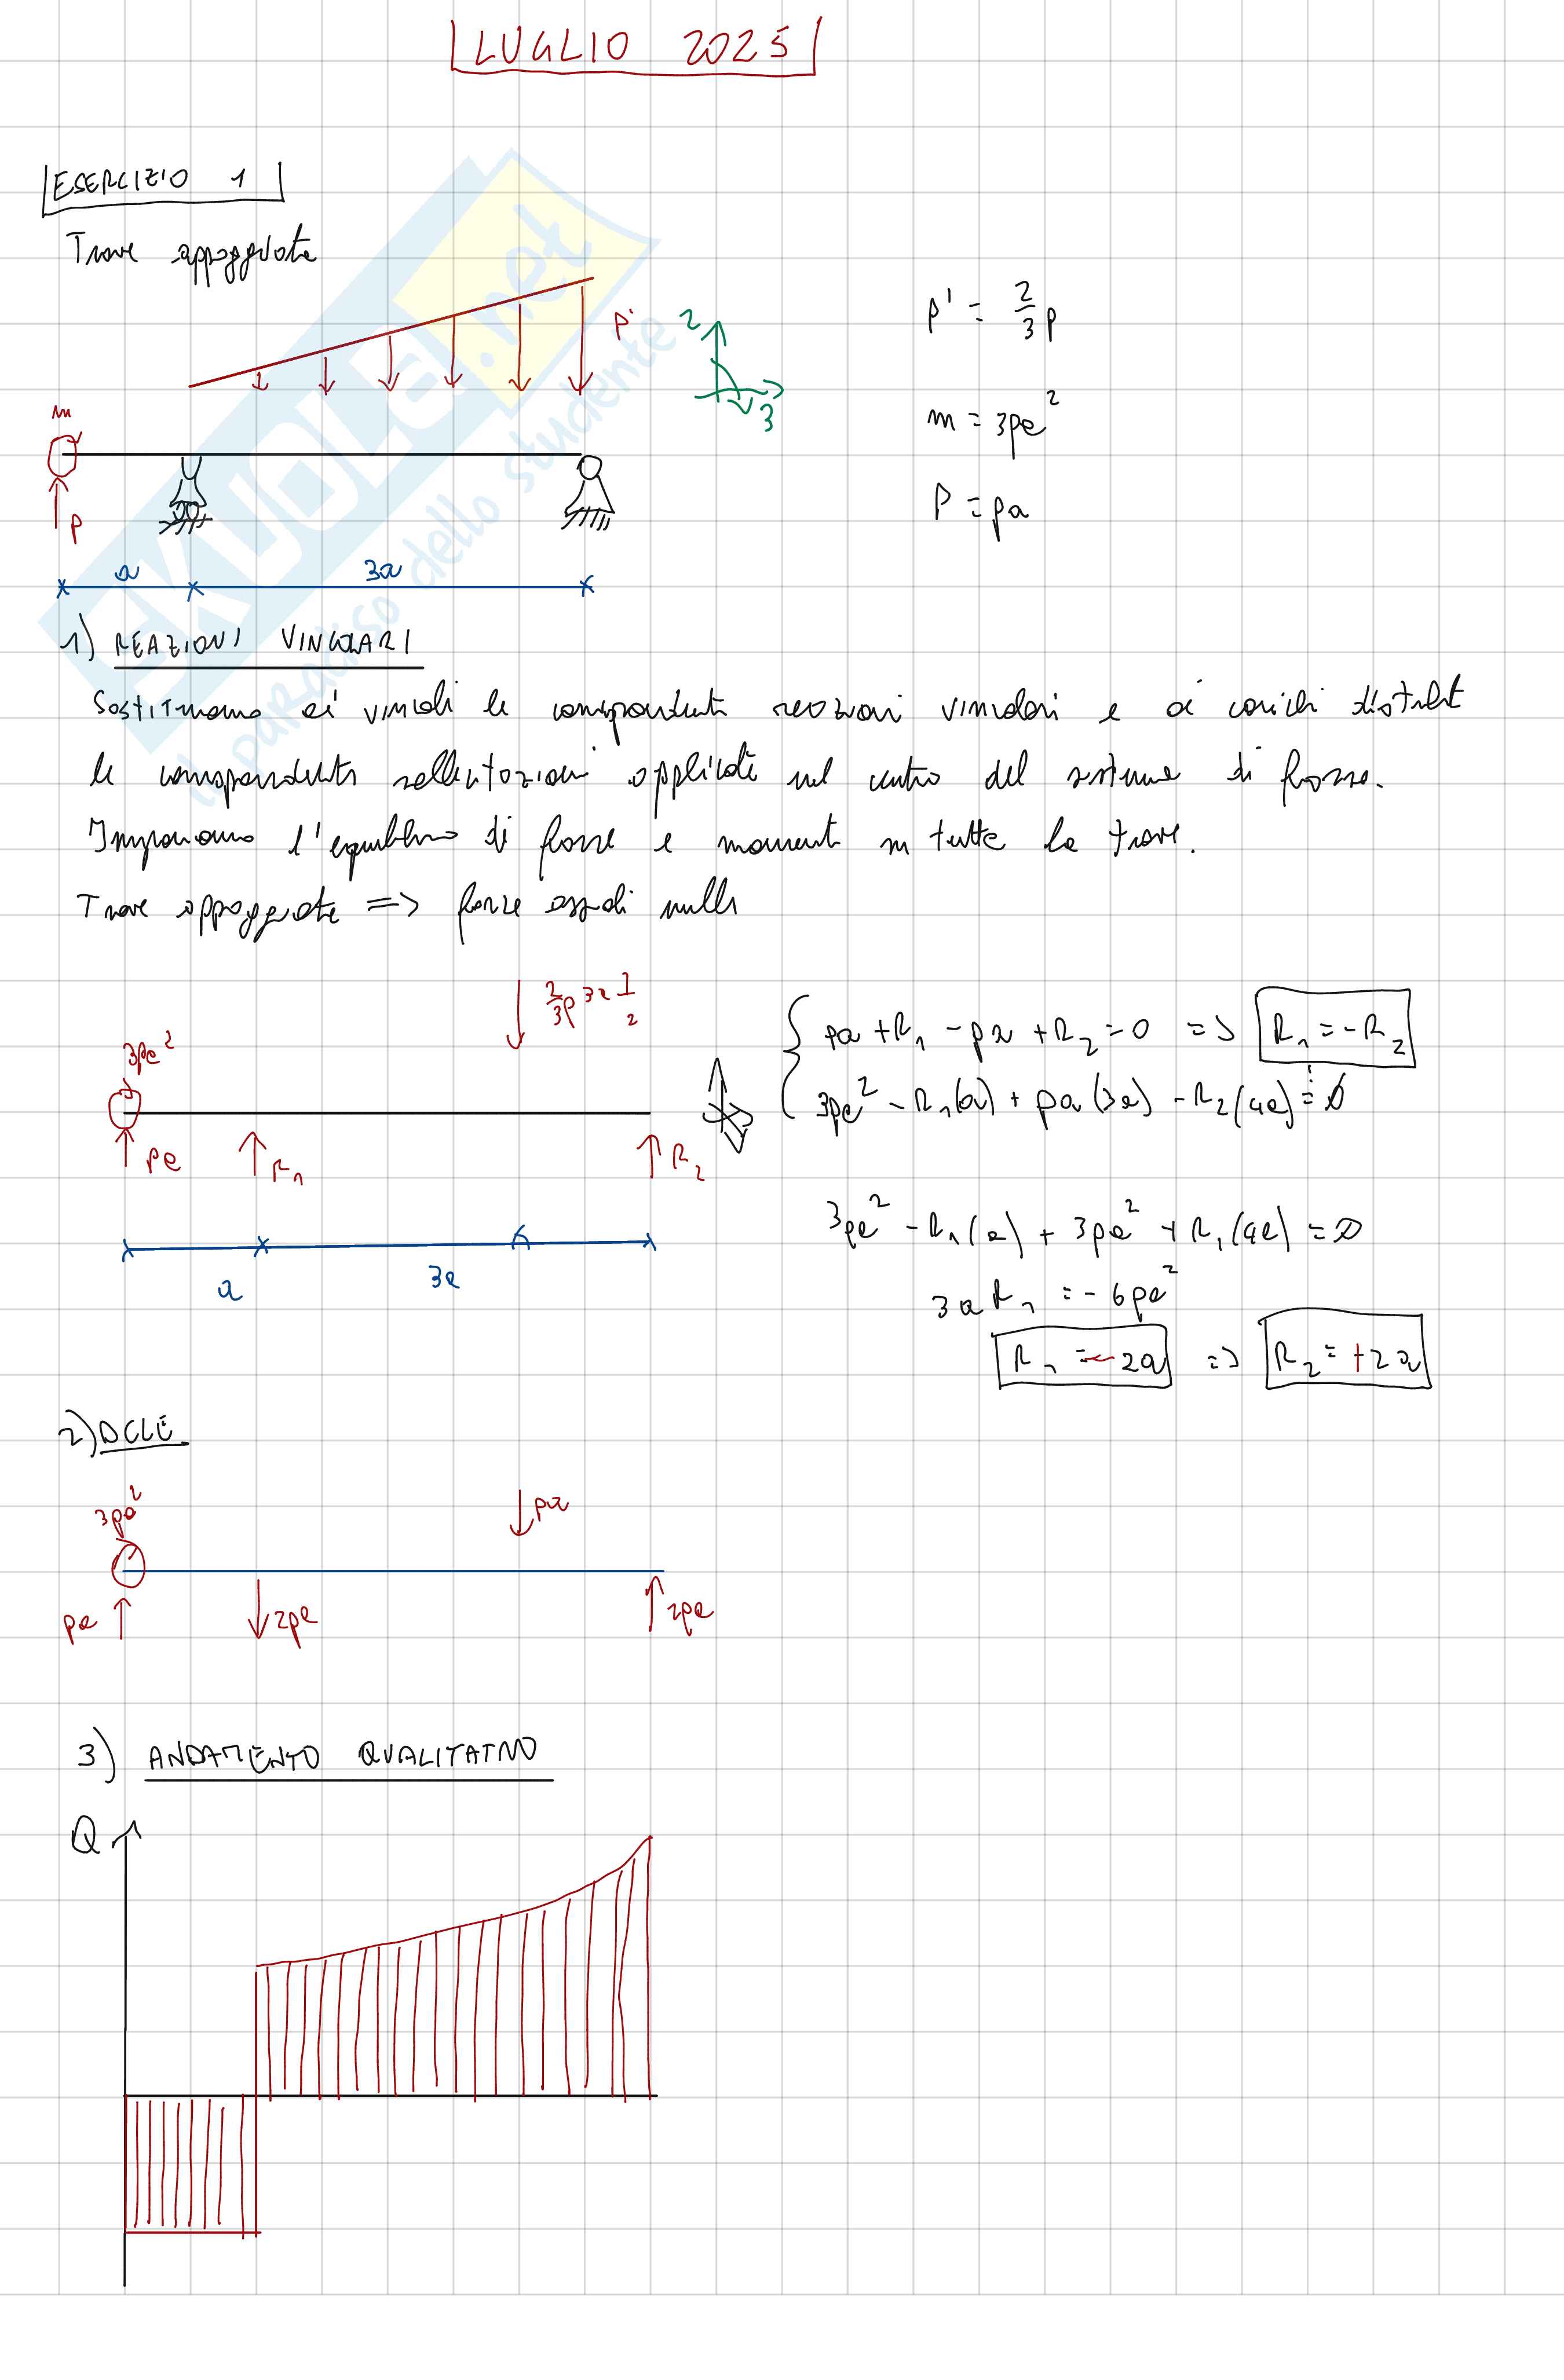 LUGLIO 2025
ESERCIZIO 1
Trave appoggiata
p'
2
3
p' = 2/3 p
m = 3pa²
P = pa
m
P
a
3a
SKUOLA.net
il paradiso dello studente
1) REAZIONI VINCOLARI
Sostituiamo ai vincoli le corrispondenti reazioni vincolari e ai carichi distribuiti
le corrispondenti sollecitazioni applicate nel centro del sistema di forze.
Imponiamo l'equilibrio di forze e momenti in tutta la trave.
Trave appoggiata => forze assiali nulle
2/3 p 3a 1/2
3pa²
pa
R₁
R₂
a
3a
pa + R₁ - pa + R₂ = 0 => R₁ = -R₂
3pa² - R₁(a) + pa(3a) - R₂(4a) = 0
3pa² - R₁(a) + 3pa² + R₁(4a) = 0
3a R₁ = - 6pa²
R₁ = -2a => R₂ = +2a
2) DCLE
3pa²
pa
pa
2pa
2pa
3) ANDAMENTO QUALITATIVO
Q